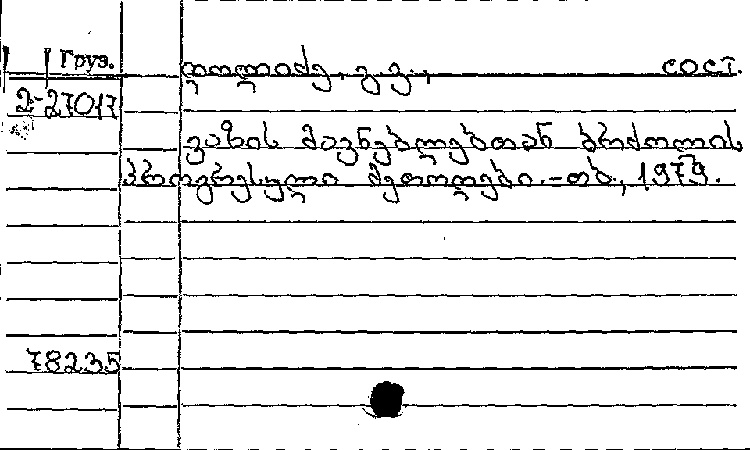 Груз. ლოლიძე, გ. გ., сост.
2-27017
ვაზის მავნებლებთან ბრძოლის
პროგრესული მეთოდები.-თბ., 1979.
78235